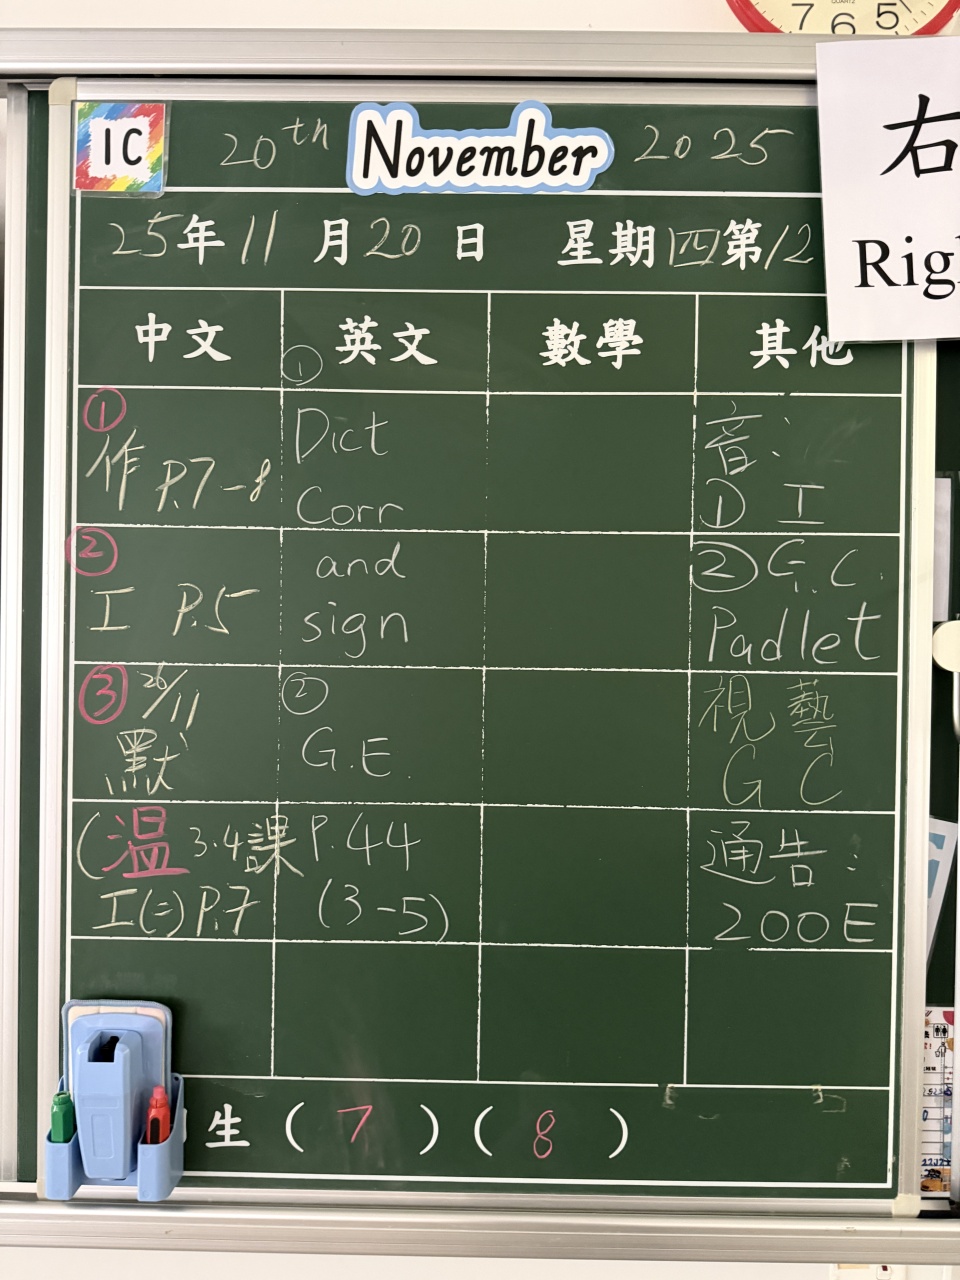 7 6 5
QUARTZ
1C
20th November 2025
右
Rig
25年11月20日 星期四第12
中文 ① 英文 數學 其他
①
作 P.7-8
②
工 P.5
③ 26/11
默
(温 3.4課
工(二) P.7
Dict
Corr
and
sign
②
G.E.
P.44
(3-5)
音:
① 工
② G.C.
Padlet
視藝
GC
通告:
200E
生 ( 7 ) ( 8 )